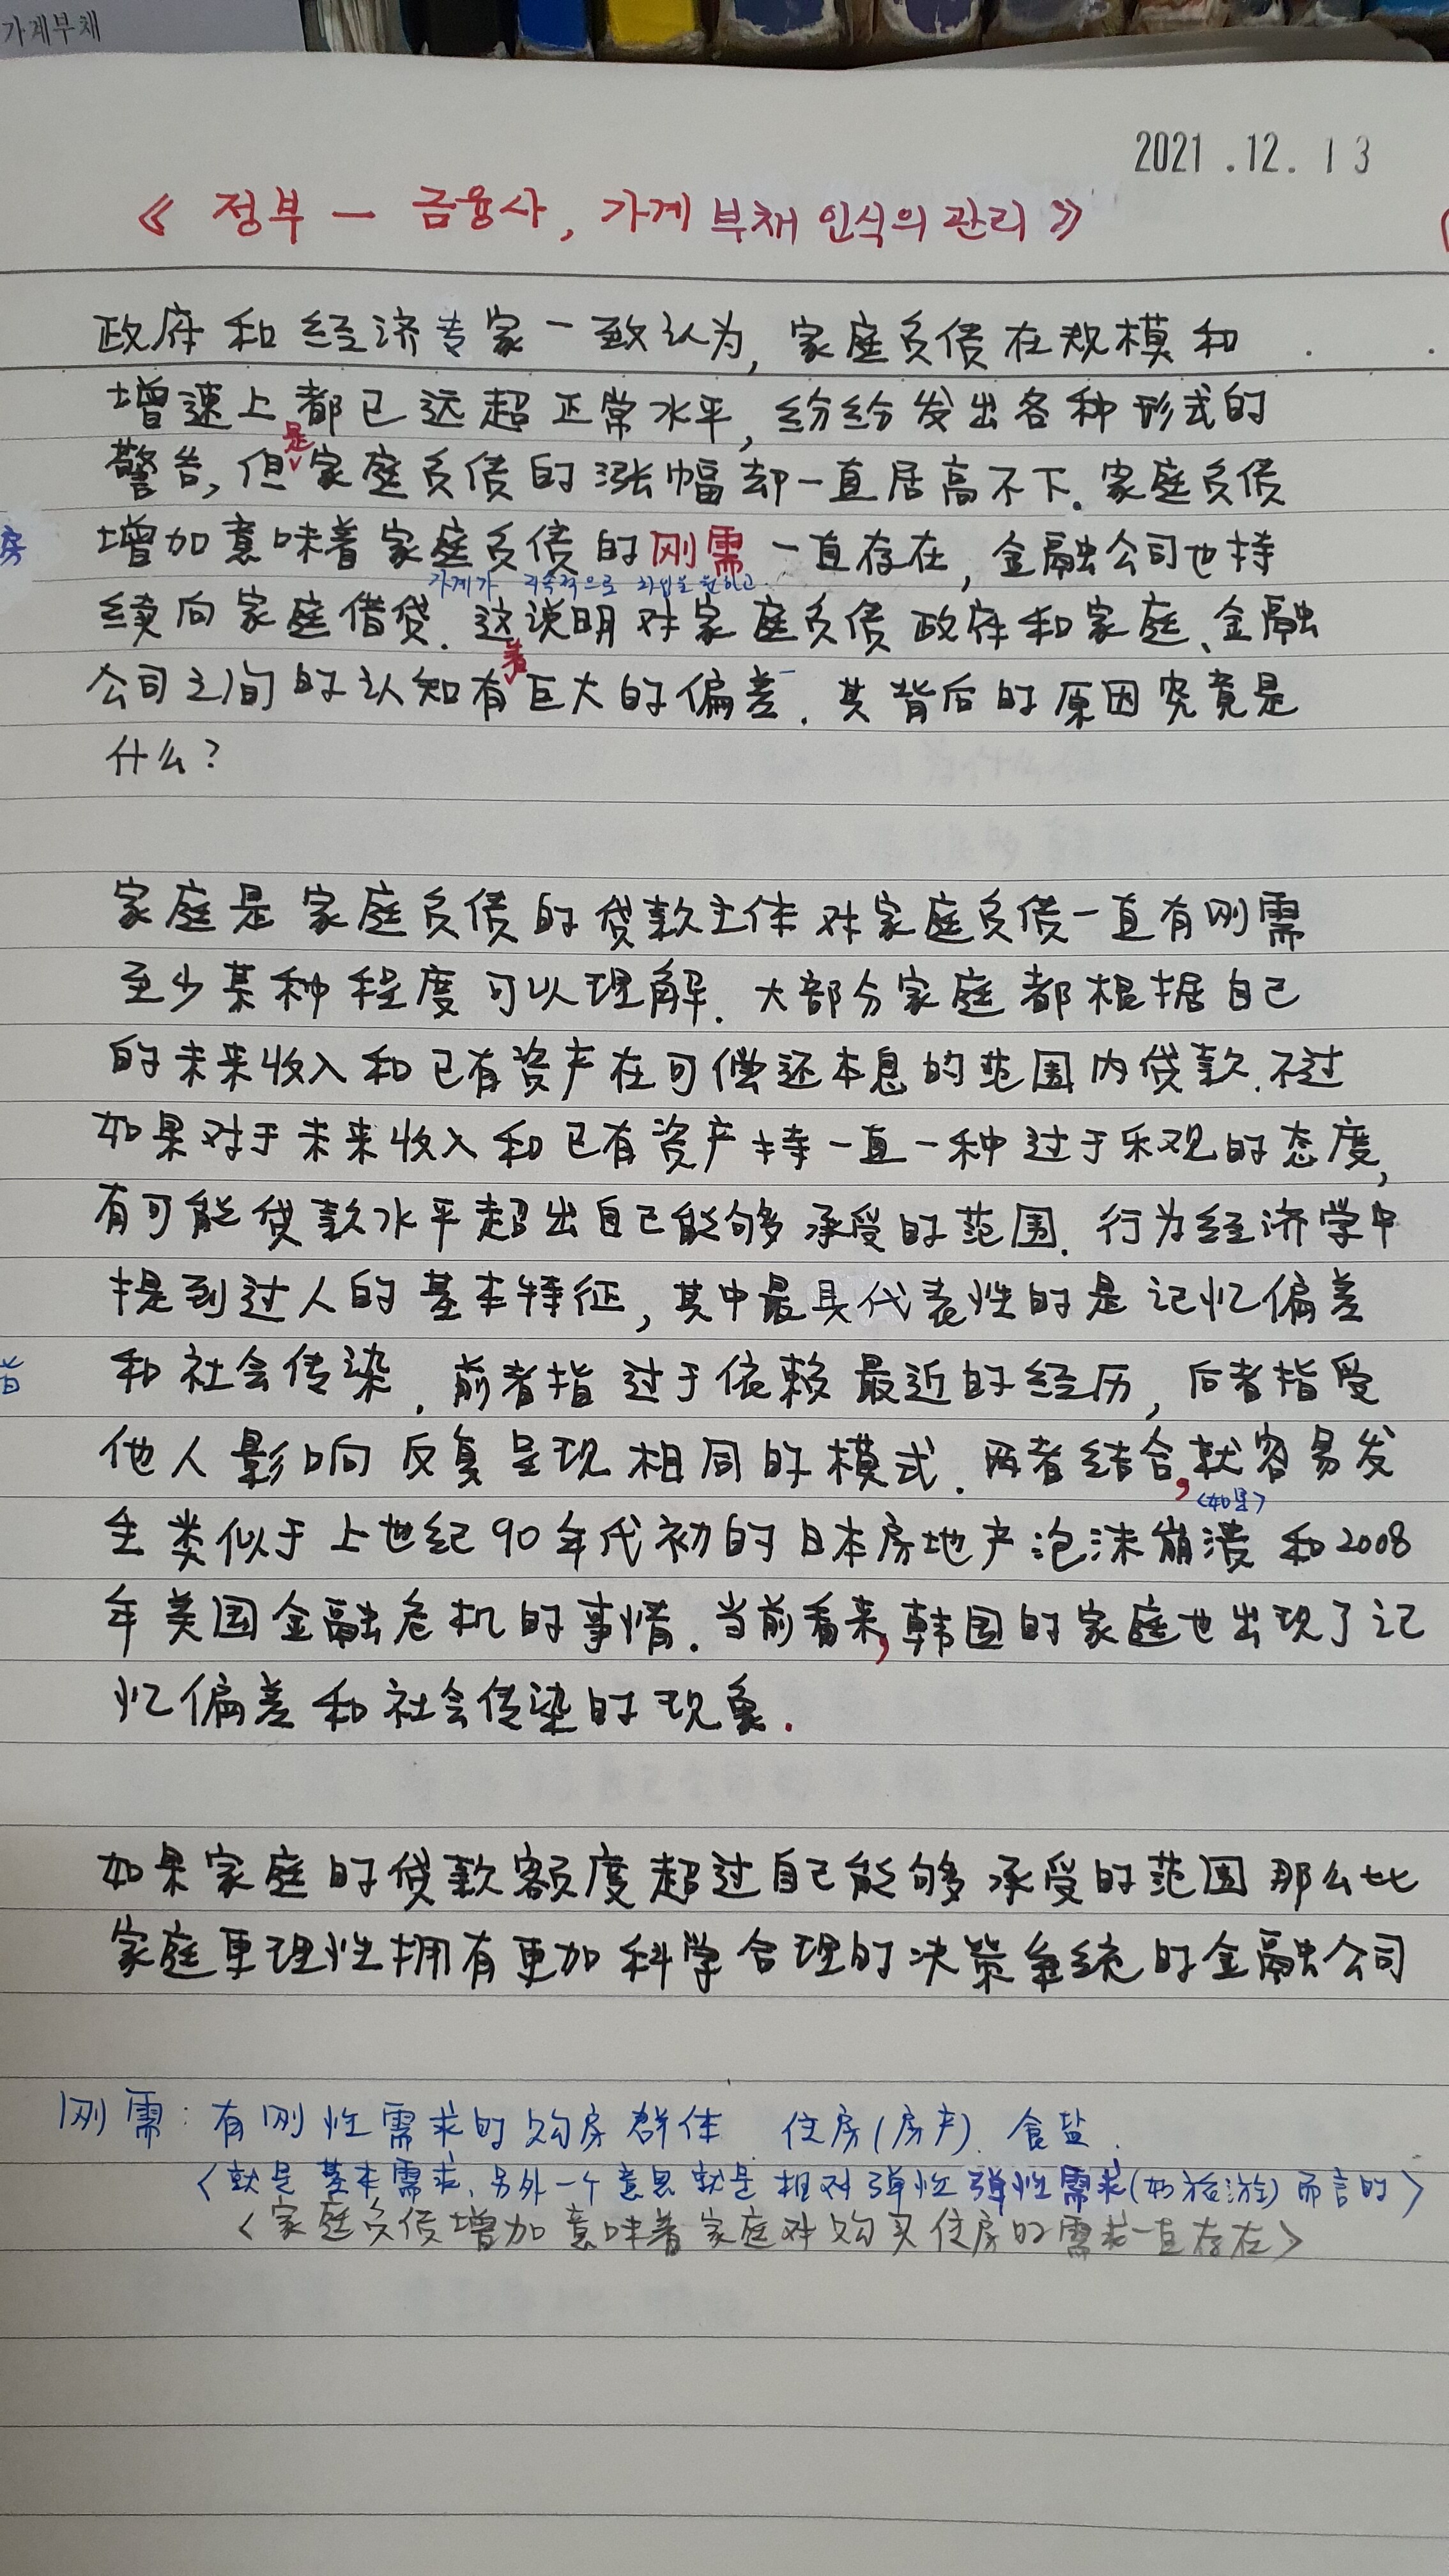 가계부채
2021.12.13
《정부 — 금융사, 가계 부채 인식의 관리》
政府和经济专家一致认为, 家庭负债在规模和
增速上都已远超正常水平, 纷纷发出各种形式的
是
警告, 但家庭负债的涨幅却一直居高不下. 家庭负债
房 增加意味着家庭负债的刚需一直存在, 金融公司也持
가계가 지속적으로 차입을 원하고
续向家庭借贷. 这说明对家庭负债政府和家庭、金融
着
公司之间的认知有巨大的偏差. 其背后的原因究竟是
什么?
家庭是家庭负债的贷款主体对家庭负债一直有刚需
至少某种程度可以理解. 大部分家庭都根据自己
的未来收入和已有资产在可偿还本息的范围内贷款. 不过
如果对于未来收入和已有资产持一直一种过于乐观的态度,
有可能贷款水平超出自己能够承受的范围. 行为经济学中
提到过人的基本特征, 其中最具代表性的是记忆偏差
和社会传染. 前者指过于依赖最近的经历, 后者指受
他人影响反复呈现相同的模式. 两者结合, 就容易发
生类似于上世纪90年代初的日本房地产泡沫崩溃和2008
年美国金融危机的事情. 当前看来, 韩国的家庭也出现了记
忆偏差和社会传染的现象.
如果家庭的贷款额度超过自己能够承受的范围那么比
家庭更理性拥有更加科学合理的决策系统的金融公司
刚需: 有刚性需求的购房群体 住房(房产). 食盐.
<就是基本需求. 另外一个意思就是相对弹性弹性需求(如旅游)而言的>
<家庭负债增加意味着家庭对购买住房的需求一直存在>